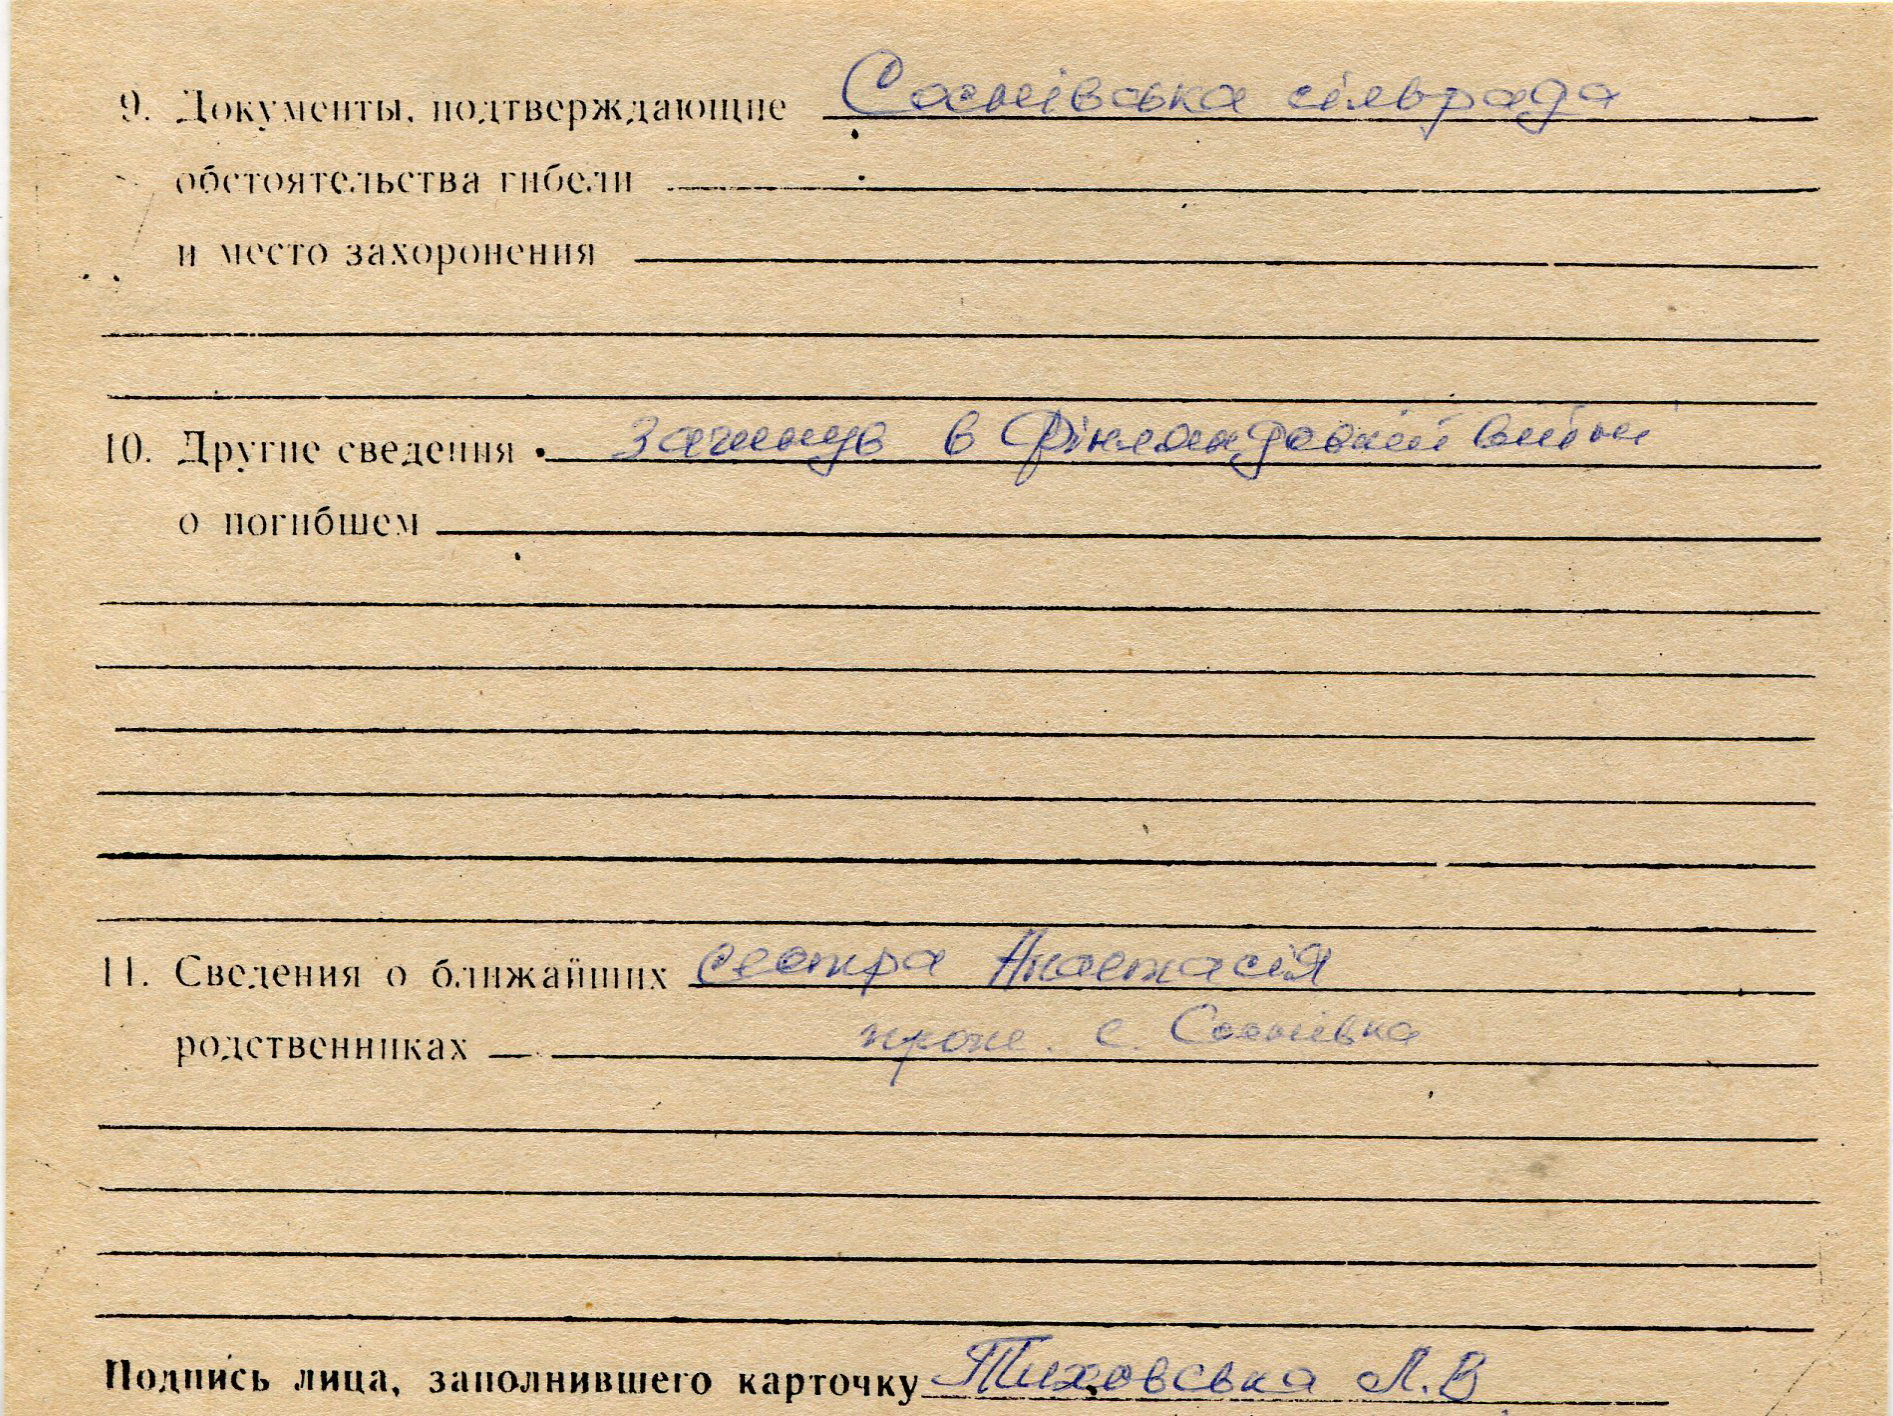 9. Документы, подтверждающие Соснівська сільрада
обстоятельства гибели
и место захоронения
10. Другие сведения загинув в Фінляндській війні
о погибшем
11. Сведения о ближайших сестра Анастасія
родственниках прож. с. Соснівка
Подпись лица, заполнившего карточку Тиховська Л.В